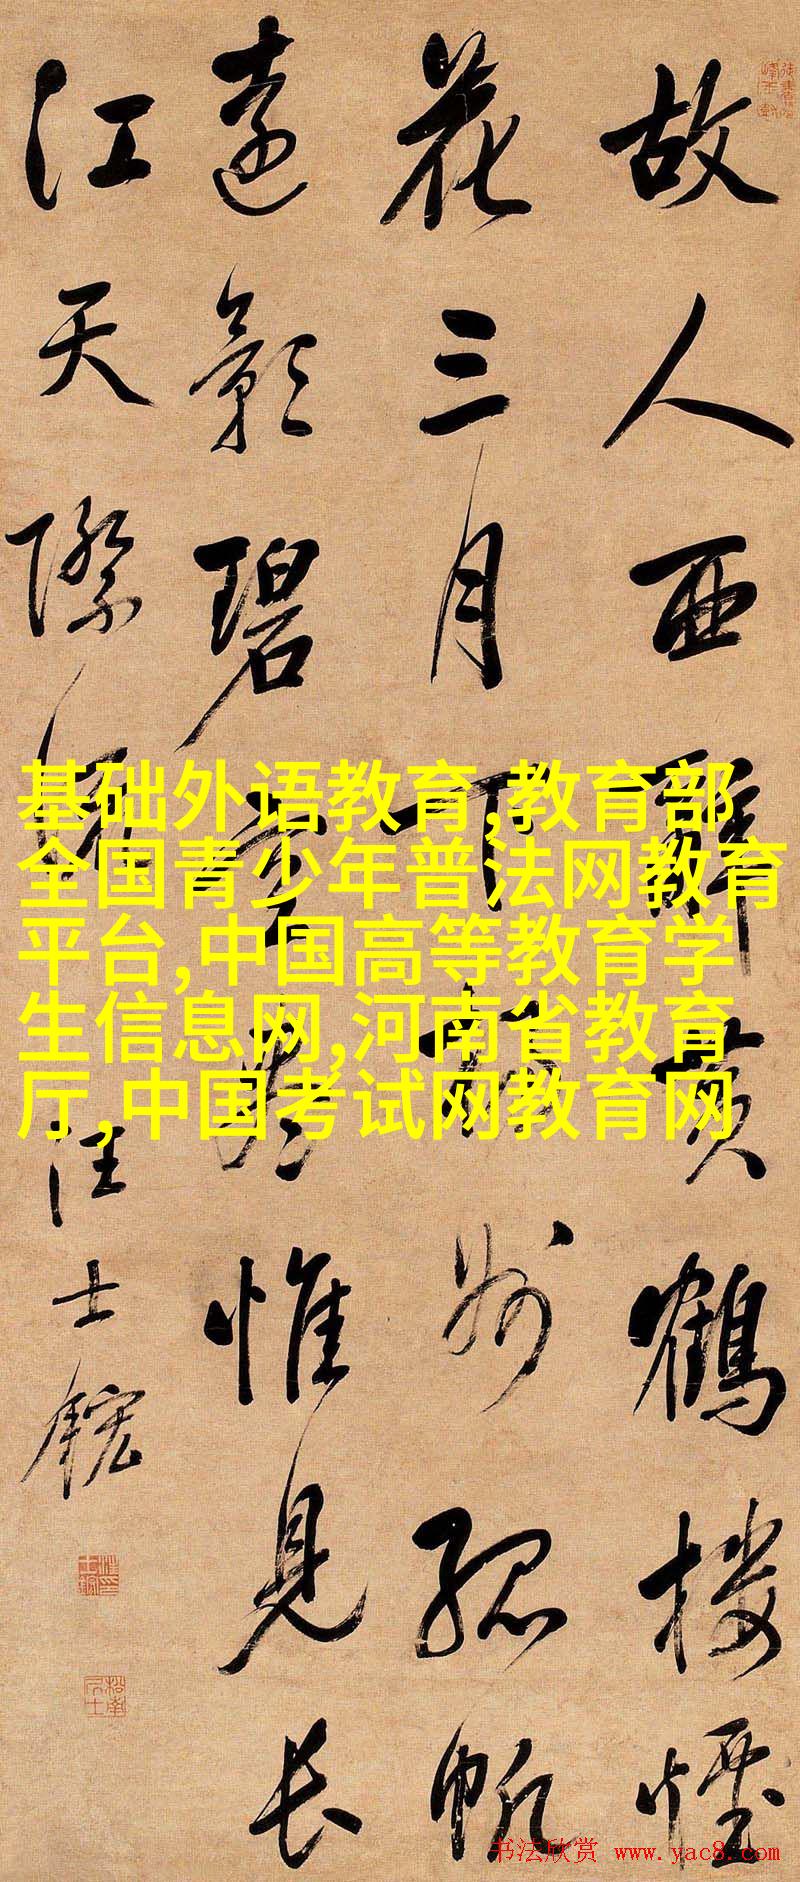 故人西辭黃鶴樓煙
花三月下揚州孤帆
遠影碧空盡惟見長
江天際流
汪士鋐
基础外语教育,教育部
全国青少年普法网教育
平台,中国高等教育学
生信息网,河南省教育
厅,中国考试网教育网
书法欣赏 www.yac8.com